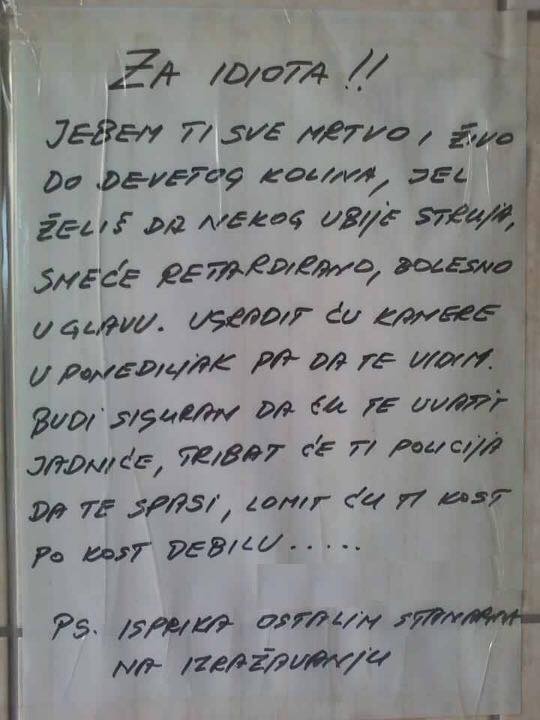 ZA IDIOTA!!
JEBEM TI SVE MRTVO I ŽIVO
DO DEVETOG KOLINA, JEL
ŽELIŠ DA NEKOG UBIJE STRUJA,
SMEĆE RETARDIRANO, BOLESNO
U GLAVU. UGRADIT ĆU KAMERE
U PONEDILJAK PA DA TE VIDIM.
BUDI SIGURAN DA ĆU TE UVATIT
JADNIĆE, TRIBAT ĆE TI POLICIJA
DA TE SPASI, LOMIT ĆU TI KOST
PO KOST DEBILU.....
PS. ISPRIKA OSTALIM STANARIMA
NA IZRAŽAVANJU